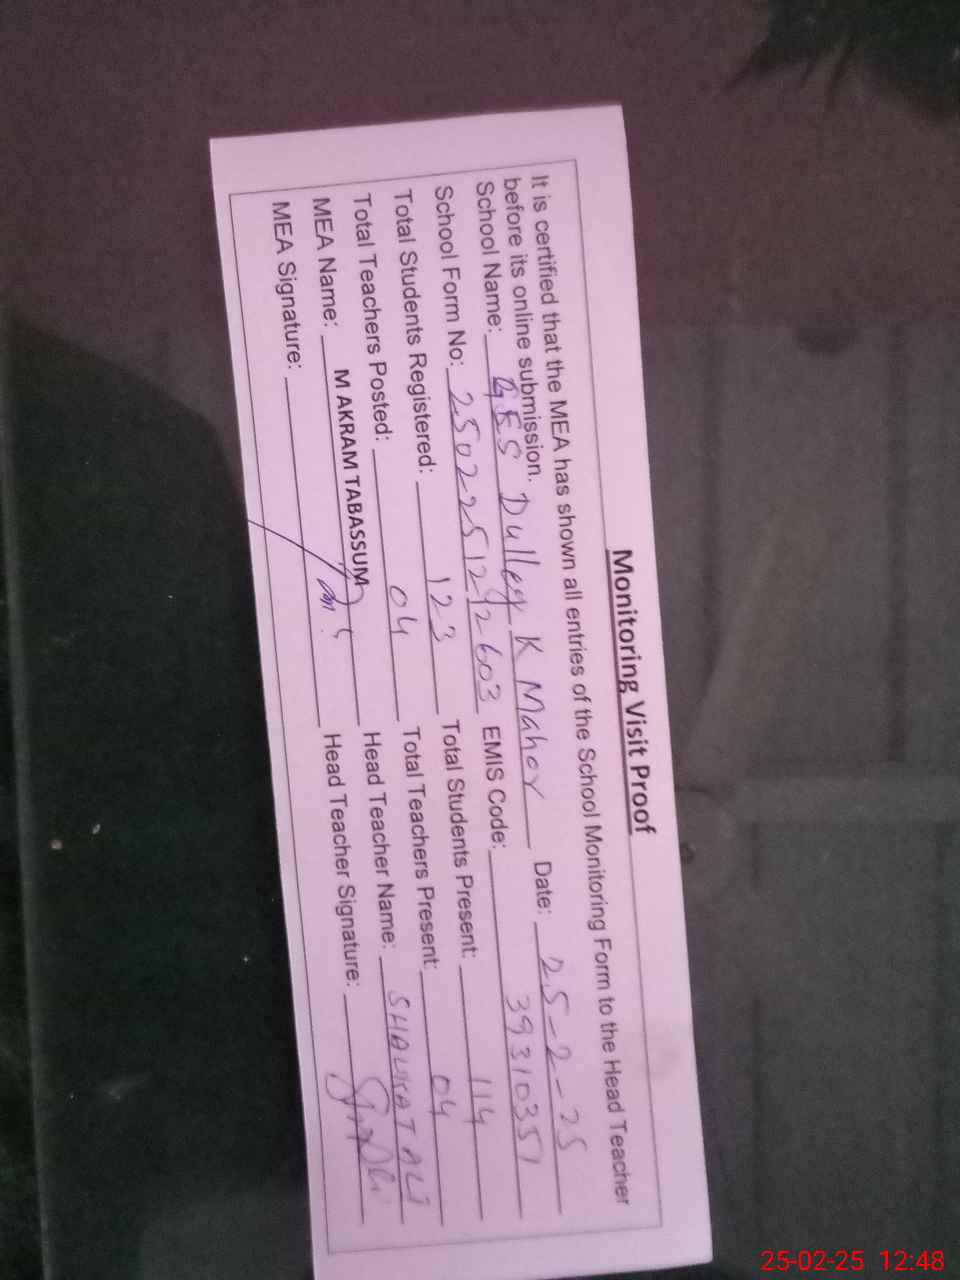 Monitoring Visit Proof
It is certified that the MEA has shown all entries of the School Monitoring Form to the Head Teacher
before its online submission.
School Name: GES Dulley K Mahor Date: 25-2-25
School Form No: 2502251292603 EMIS Code: 39310351
Total Students Registered: 123 Total Students Present: 114
Total Teachers Posted: 04 Total Teachers Present: 04
MEA Name: M AKRAM TABASSUM Head Teacher Name: SHAUKAT ALI
MEA Signature: Head Teacher Signature:
25-02-25 12:48